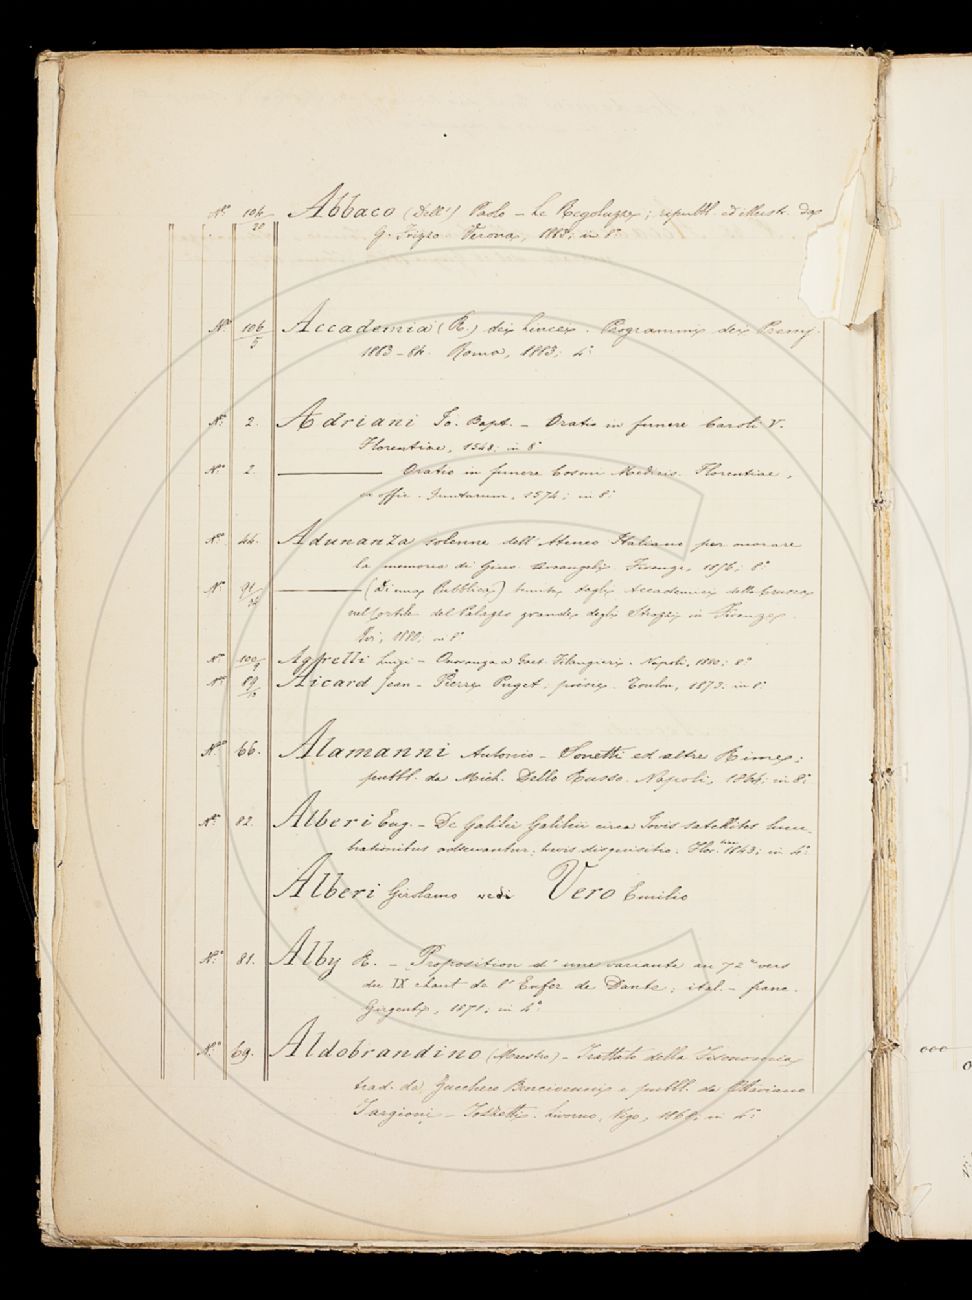 N.º 104/20 Abbaco (Dell') Paolo – Le Regoluzze; ripubbl. ed illustr. da
G. Frizzo Verona, 1883; in 8.º
N.º 106/5 Accademia (R.) dei Lincei. Programmi dei Premj.
1883–84. Roma, 1883; 4.º
N.º 2. Adriani Io. Bapt. – Oratio in funere Caroli V.
Florentiae, 1548; in 8º
N.º 2. ——— Oratio in funere Cosmi Medicis. Florentiae,
ex offic. Iuntarum, 1574; in 8.º
N.º 44. Adunanza solenne dell'Ateneo Italiano per onorare
la memoria di Giov. Evangelj. Firenze, 1876; 8º
N.º ——— (Di una Pubblica) tenuta dagli Accademici della Crusca
nel Cortile del Palazzo grande degli Strozzi in Firenze.
Ivi, 1880; in 8º
N.º 100/9 Agfrelli Luigi – Onoranza a Gaet. Filangieri. Napoli, 1880; 8º
N.º 89/6 Aicard Jean – Pierre Puget, poésie. Toulon, 1873. in 8.º
N.º 66. Alamanni Antonio – Sonetti ed altre Rime;
pubbl. da Mich. Dello Russo. Napoli, 1866; in 8.º
N.º 82. Alberi Eug. – De Galilei Galileii circa Jovis satellites lucu-
brationibus adservantur, brevis disquisitio. Flor.tiae 1843; in 4.º
Alberi Girolamo vedi Vero Emilio
N.º 81. Alby R. – Proposition d'une variante au 72.e vers
du IX chant de l'Enfer de Dante; ital. – franc.
Girgenti, 1871; in 4.º
N.º 69. Aldobrandino (Mestro) – Trattato della Fisonomia
trad. da Zucchero Bencivenni e pubbl. da Ottaviano
Targioni – Tozzetti. Livorno, Vigo, 1868; in 4.º